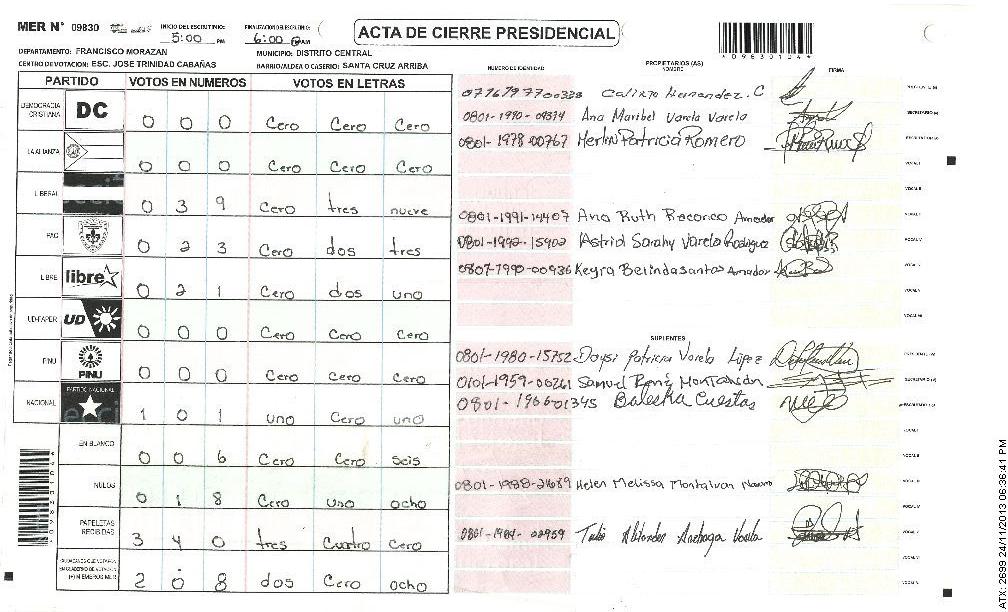 MER N° 09830 INICIO DEL ESCRUTINIO: 5:00 PM FINALIZACION DEL ESCRUTINIO: 6:00 PM ACTA DE CIERRE PRESIDENCIAL
DEPARTAMENTO: FRANCISCO MORAZAN MUNICIPIO: DISTRITO CENTRAL
CENTRO DE VOTACION: ESC. JOSE TRINIDAD CABAÑAS BARRIO/ALDEA O CASERIO: SANTA CRUZ ARRIBA
PARTIDO VOTOS EN NUMEROS VOTOS EN LETRAS
DEMOCRACIA CRISTIANA DC 0 0 0 Cero Cero Cero
LA ALIANZA 0 0 0 Cero Cero Cero
LIBERAL 0 3 9 Cero tres nueve
PAC 0 2 3 Cero dos tres
LIBRE libre 0 2 1 Cero dos uno
UD-FAPER UD 0 0 0 Cero Cero Cero
PINU PINU 0 0 0 Cero Cero Cero
NACIONAL PARTIDO NACIONAL 1 0 1 uno Cero uno
EN BLANCO 0 0 6 Cero Cero seis
NULOS 0 1 8 Cero uno ocho
PAPELETAS RECIBIDAS 3 4 0 tres Cuatro Cero
2 0 8 dos Cero ocho
NUMERO DE IDENTIDAD PROPIETARIOS (AS) NOMBRE FIRMA
Calixto Hernandez. C
Ana Maribel Varela Varela
0801-1978-00767 Herlin Patricia Romero
0801-1991-14407 Ana Ruth Amador
0801-1992-15902 Astrid Sarahy Varela Rodriguez
0807-1990-00936 Keyra Belinda santos Amador
SUPLENTES
0801-1980-15752 Daysi Patricia Varela López
0101-1959-00261 Samuel René
Cuestas
Helen Melissa Montalvan
Varela
ATX: 2699 24/11/2013 06:36:41 PM